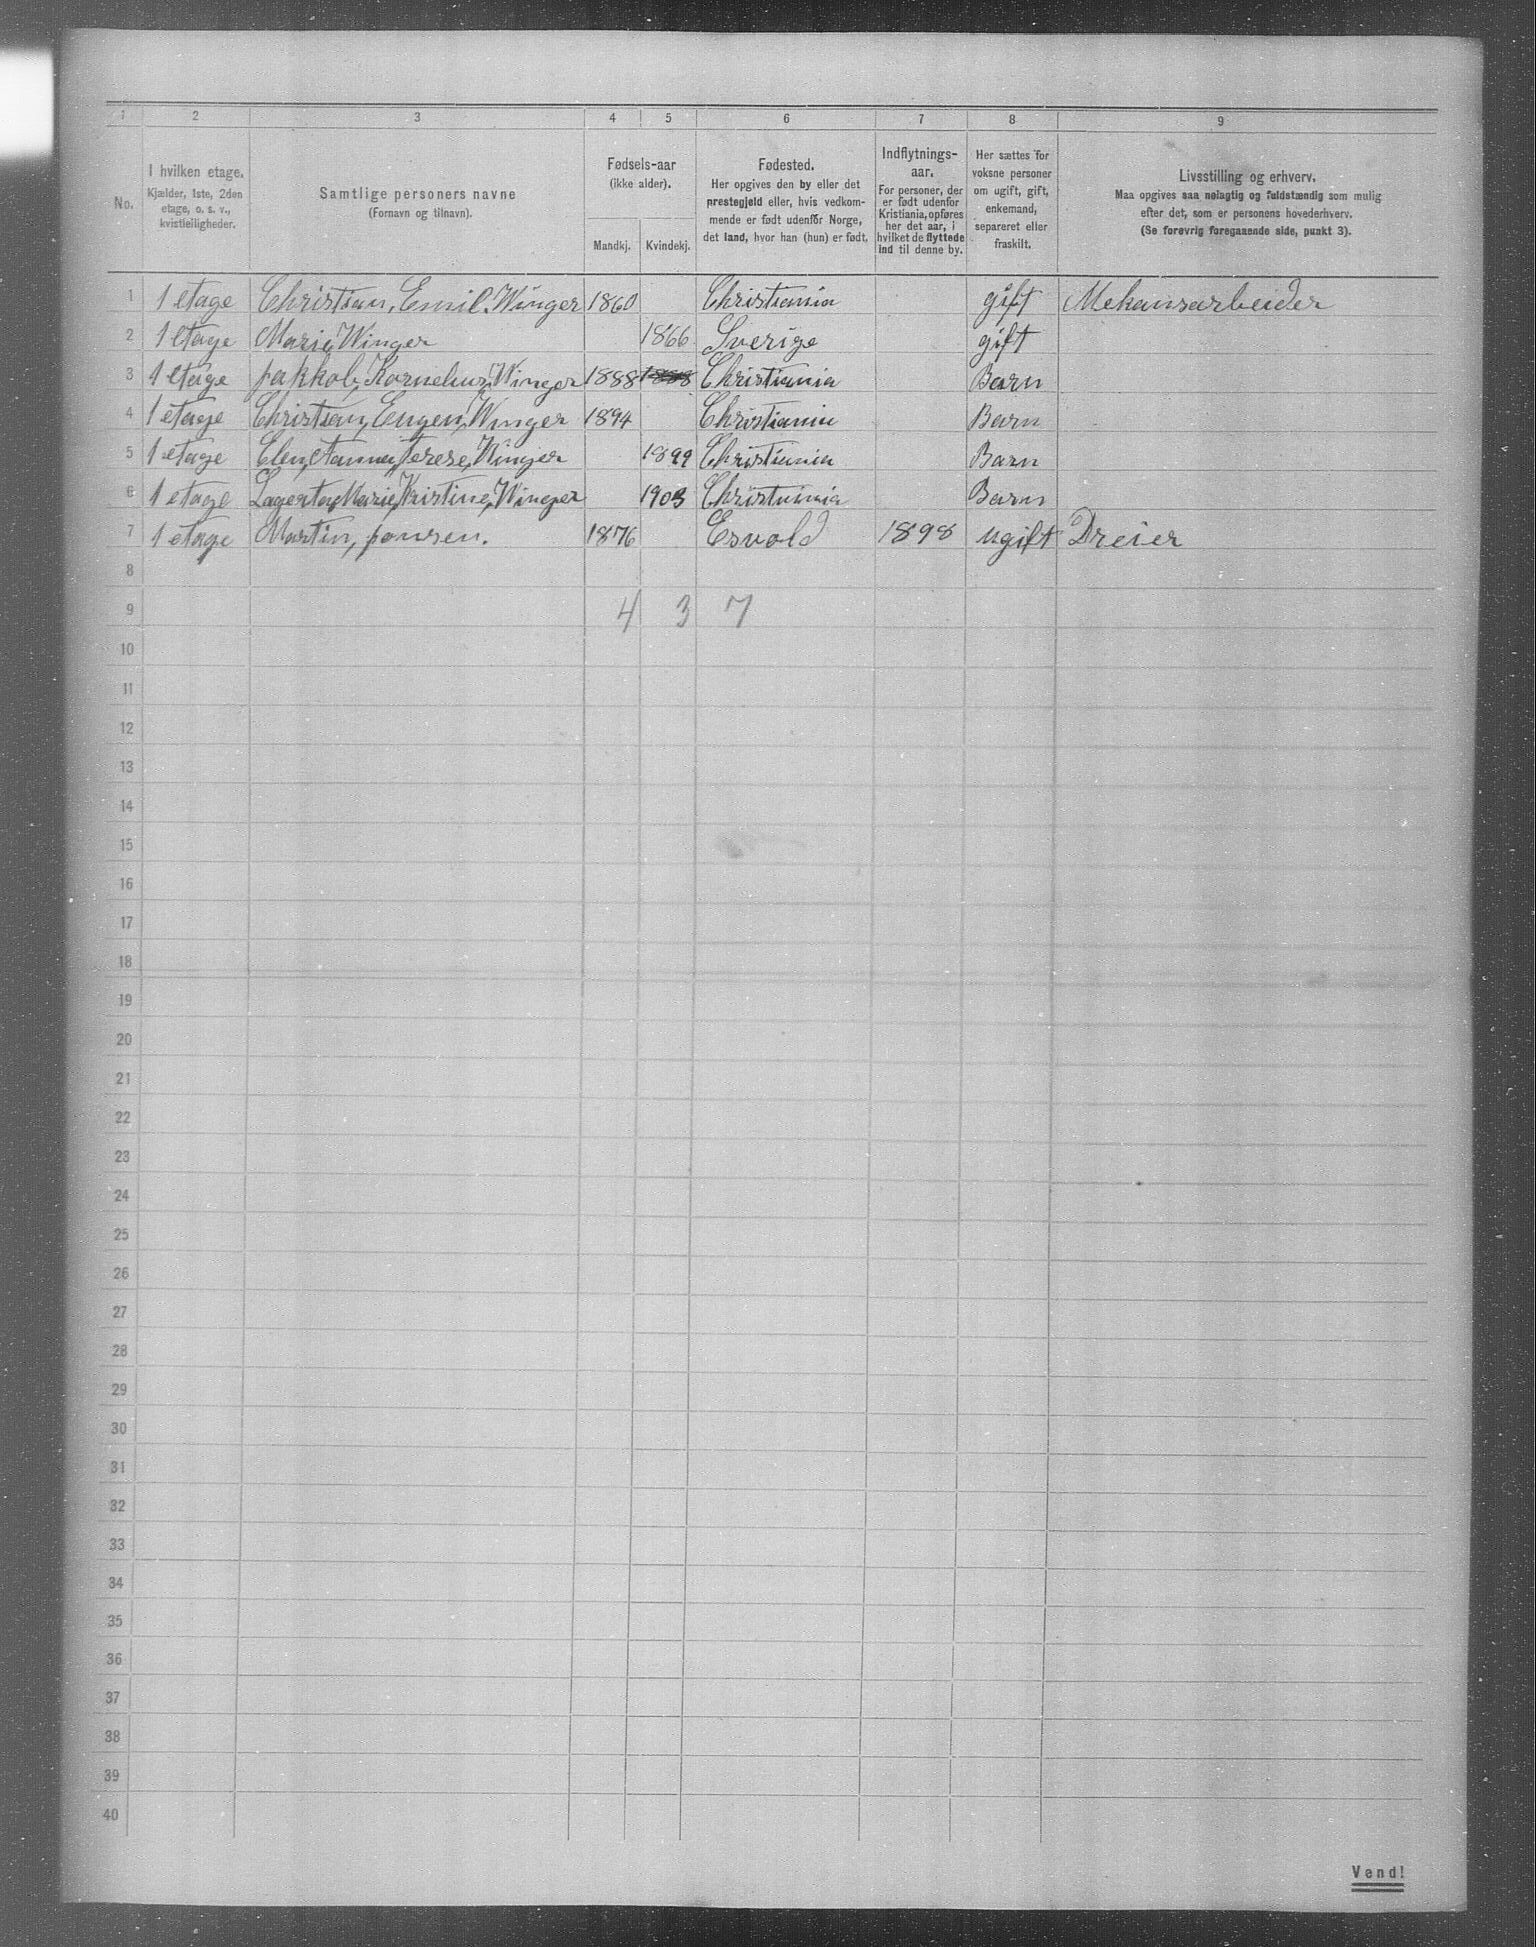 1 2 3 4 5 6 7 8 9
No.
I hvilken etage.
Kjælder, 1ste, 2den
etage, o. s. v.,
kvistleiligheder.
Samtlige personers navne
(Fornavn og tilnavn).
Fødsels-aar
(ikke alder).
Mandkj. Kvindekj.
Fødested.
Her opgives den by eller det
prestegjeld eller, hvis vedkom-
mende er født udenfor Norge,
det land, hvor han (hun) er født.
Indflytnings-
aar.
For personer, der
er født udenfor
Kristiania, opføres
her det aar, i
hvilket de flyttede
ind til denne by.
Her sættes for
voksne personer
om ugift, gift,
enkemand,
separeret eller
fraskilt.
Livsstilling og erhverv.
Maa opgives saa nøiagtig og fuldstændig som mulig
efter det, som er personens hovederhverv.
(Se forøvrig foregaaende side, punkt 3).
1 1 etage Christian, Emil. Winger 1860 Christiania gift Mekansarbeider
2 1 etage Marie, Winger 1866 Sverige gift
3 1 etage jakkob, Kornelius, Winger 1888 1888 Christiania Barn
4 1 etage Christian, Eugen, Winger 1894 Christiania Barn
5 1 etage Elen, Anna, Terese, Winger 1899 Christiania Barn
6 1 etage Lagerta, Marie, Kristine, Winger 1903 Christiania Barn
7 1 etage Martin, jonsen. 1876 Esvold 1898 ugift Dreier
8
9 4 3 7
10
11
12
13
14
15
16
17
18
19
20
21
22
23
24
25
26
27
28
29
30
31
32
33
34
35
36
37
38
39
40
Vend!